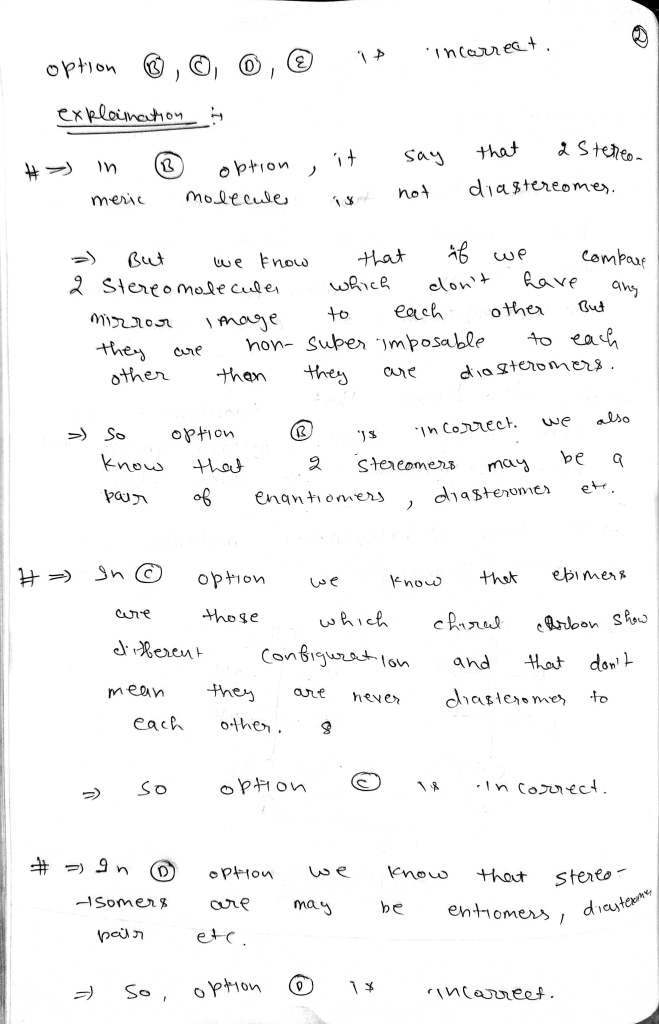 ②
option Ⓑ, Ⓒ, Ⓓ, Ⓔ is incorrect.
explaination :-
# ⇒ In Ⓑ option, it say that 2 stereo-
meric molecules is not diastereomer.
⇒ But we know that if we compare
2 stereomolecules which don't have any
mirror image to each other But
they are non-superimposable to each
other than they are diasteromers.
⇒ So option Ⓑ is incorrect. we also
know that 2 stereomers may be a
pair of enantiomers, diasteromer etc.
# ⇒ In Ⓒ option we know that epimers
are those which chiral carbon show
different configuration and that don't
mean they are never diasteromer to
each other.
⇒ so option Ⓒ is incorrect.
# ⇒ In Ⓓ option we know that stereo-
-isomers are may be entiomers, diasteromer
pair etc.
⇒ So, option Ⓓ is incorrect.